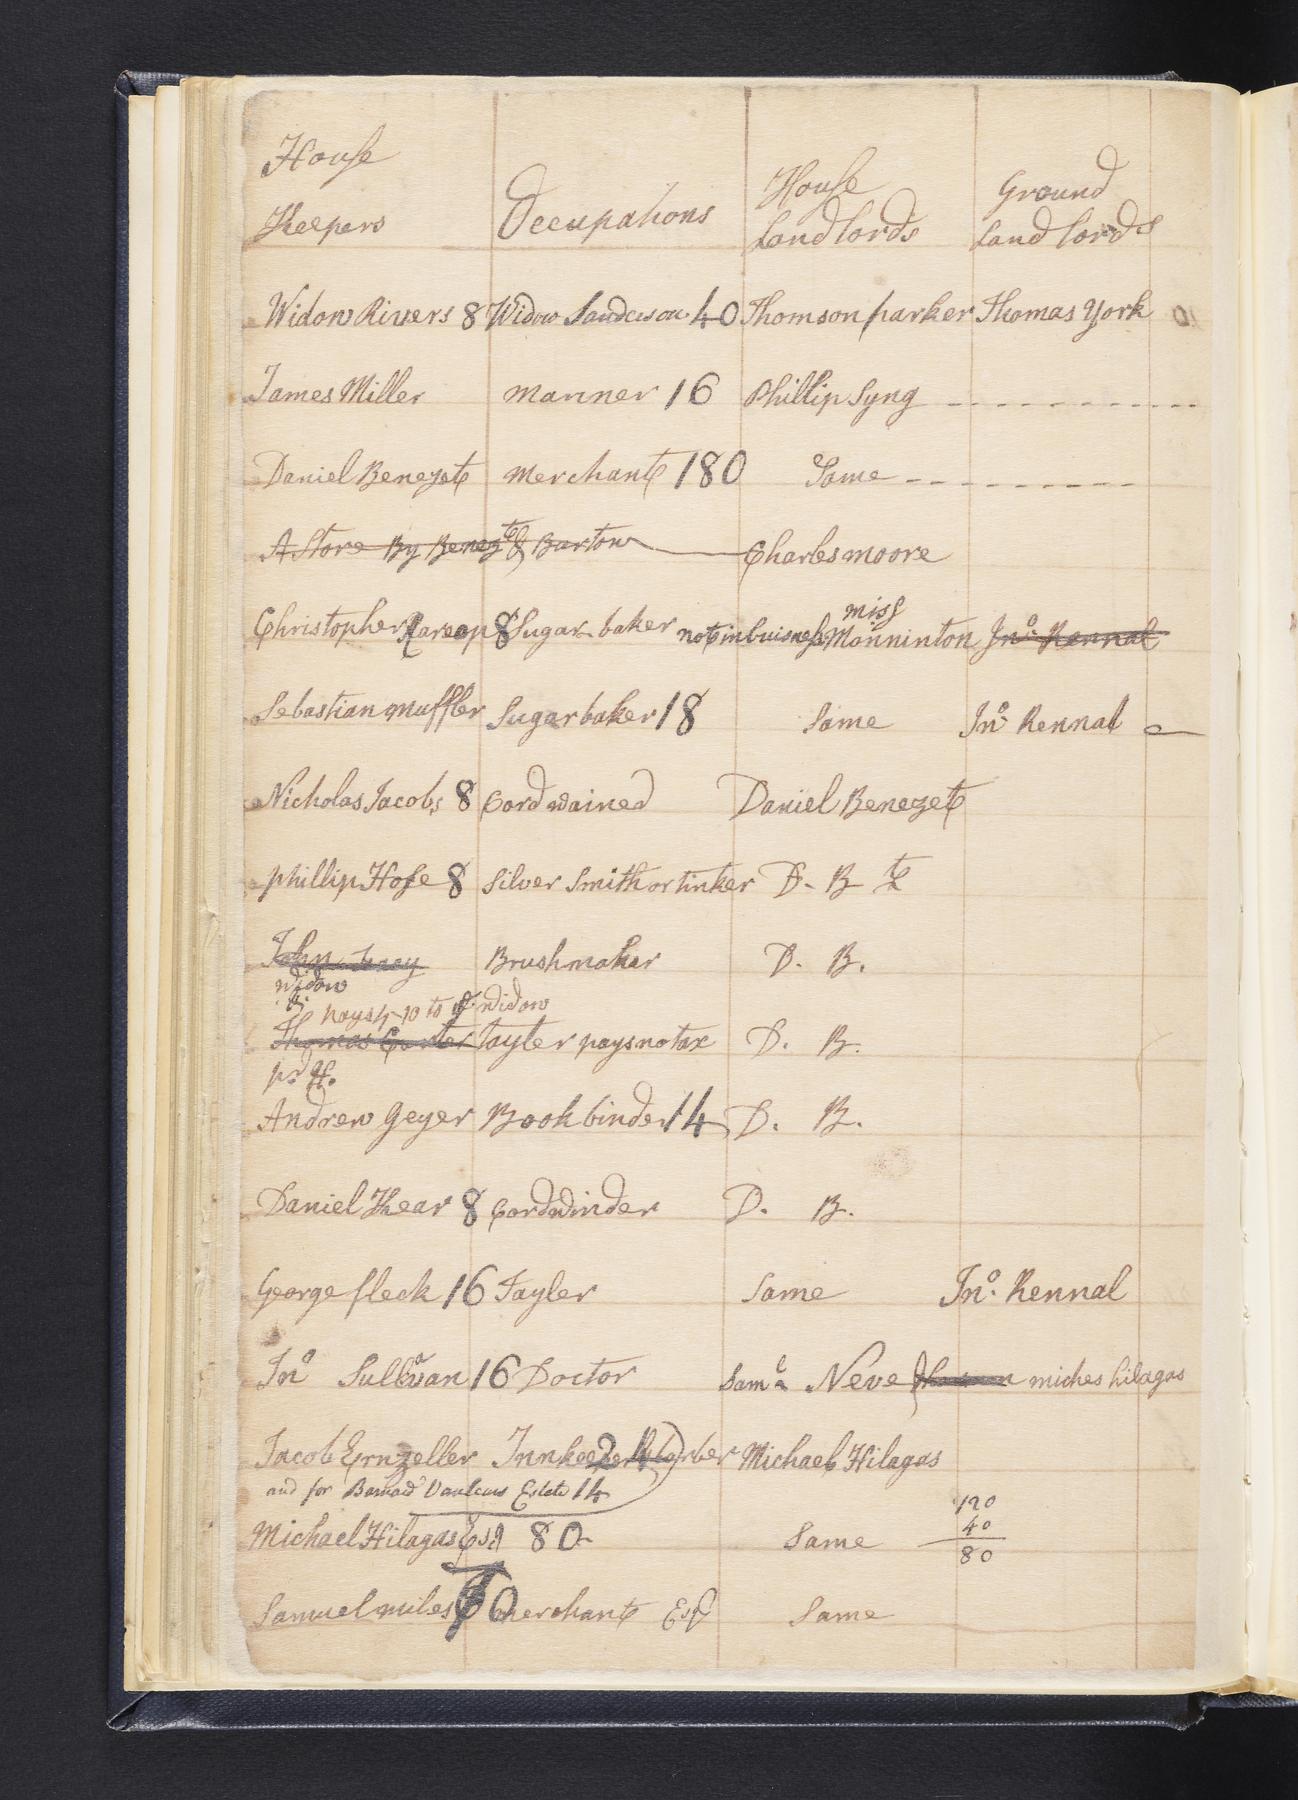 House Keepers Occupations House Landlords Ground Landlords
Widow Rivers 8 Widow Sanderson 40 Thomson parker Thomas York
James Miller Mariner 16 Phillip Syng
Daniel Benezet Merchant 180 Same
A Store By Benezt & Barton Charles moore
miss
Christopher 8 Sugar baker not in buisness Manninton Jno. Rennal
Sebastian muffler Sugar baker 18 Same Jno. Kennal
Nicholas Jacobs 8 Cordwained Daniel Benezet
phillip Hose 8 Silver Smith or tinker D. B
John Brushmaker D. B.
widow
pays 4-10 to ye widow
Thomas Carter Tayler pays no tax D. B.
pd.
Andrew Geyer Bookbinder 14 D. B.
Daniel Kear 8 Cordwinder D. B.
George fleck 16 Tayler Same Jno. Kennal
Jno Sullivan 16 Doctor Saml Neve miches hilagas
Jacob Ernzeller Innkeeper 24 barber Michael Hilagas
and for Barnard Estate 14
120
40
Michael Hilagas Esqr 80 Same 80
Samuel miles 60 merchant Esqr Same